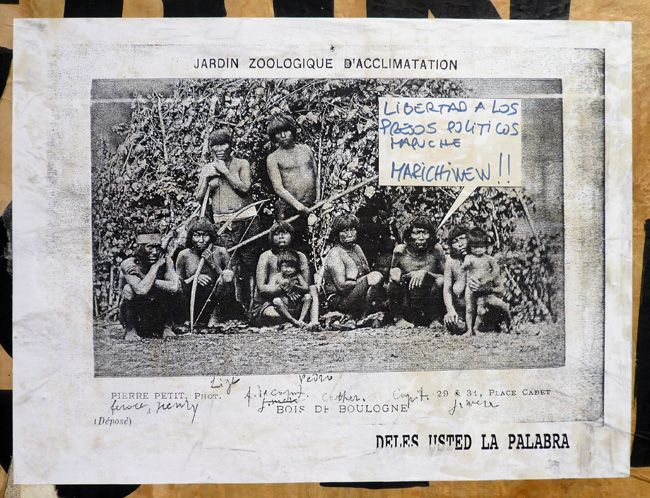 JARDIN ZOOLOGIQUE D'ACCLIMATATION
LIBERTAD A LOS
PRESOS POLITICOS
MAPUCHE
MARICHIWEW!!
Pedro
PIERRE PETIT, PHOT.
Capt.
29 & 31, PLACE CADET
henry
BOIS DE BOULOGNE
(Déposé)
DELES USTED LA PALABRA